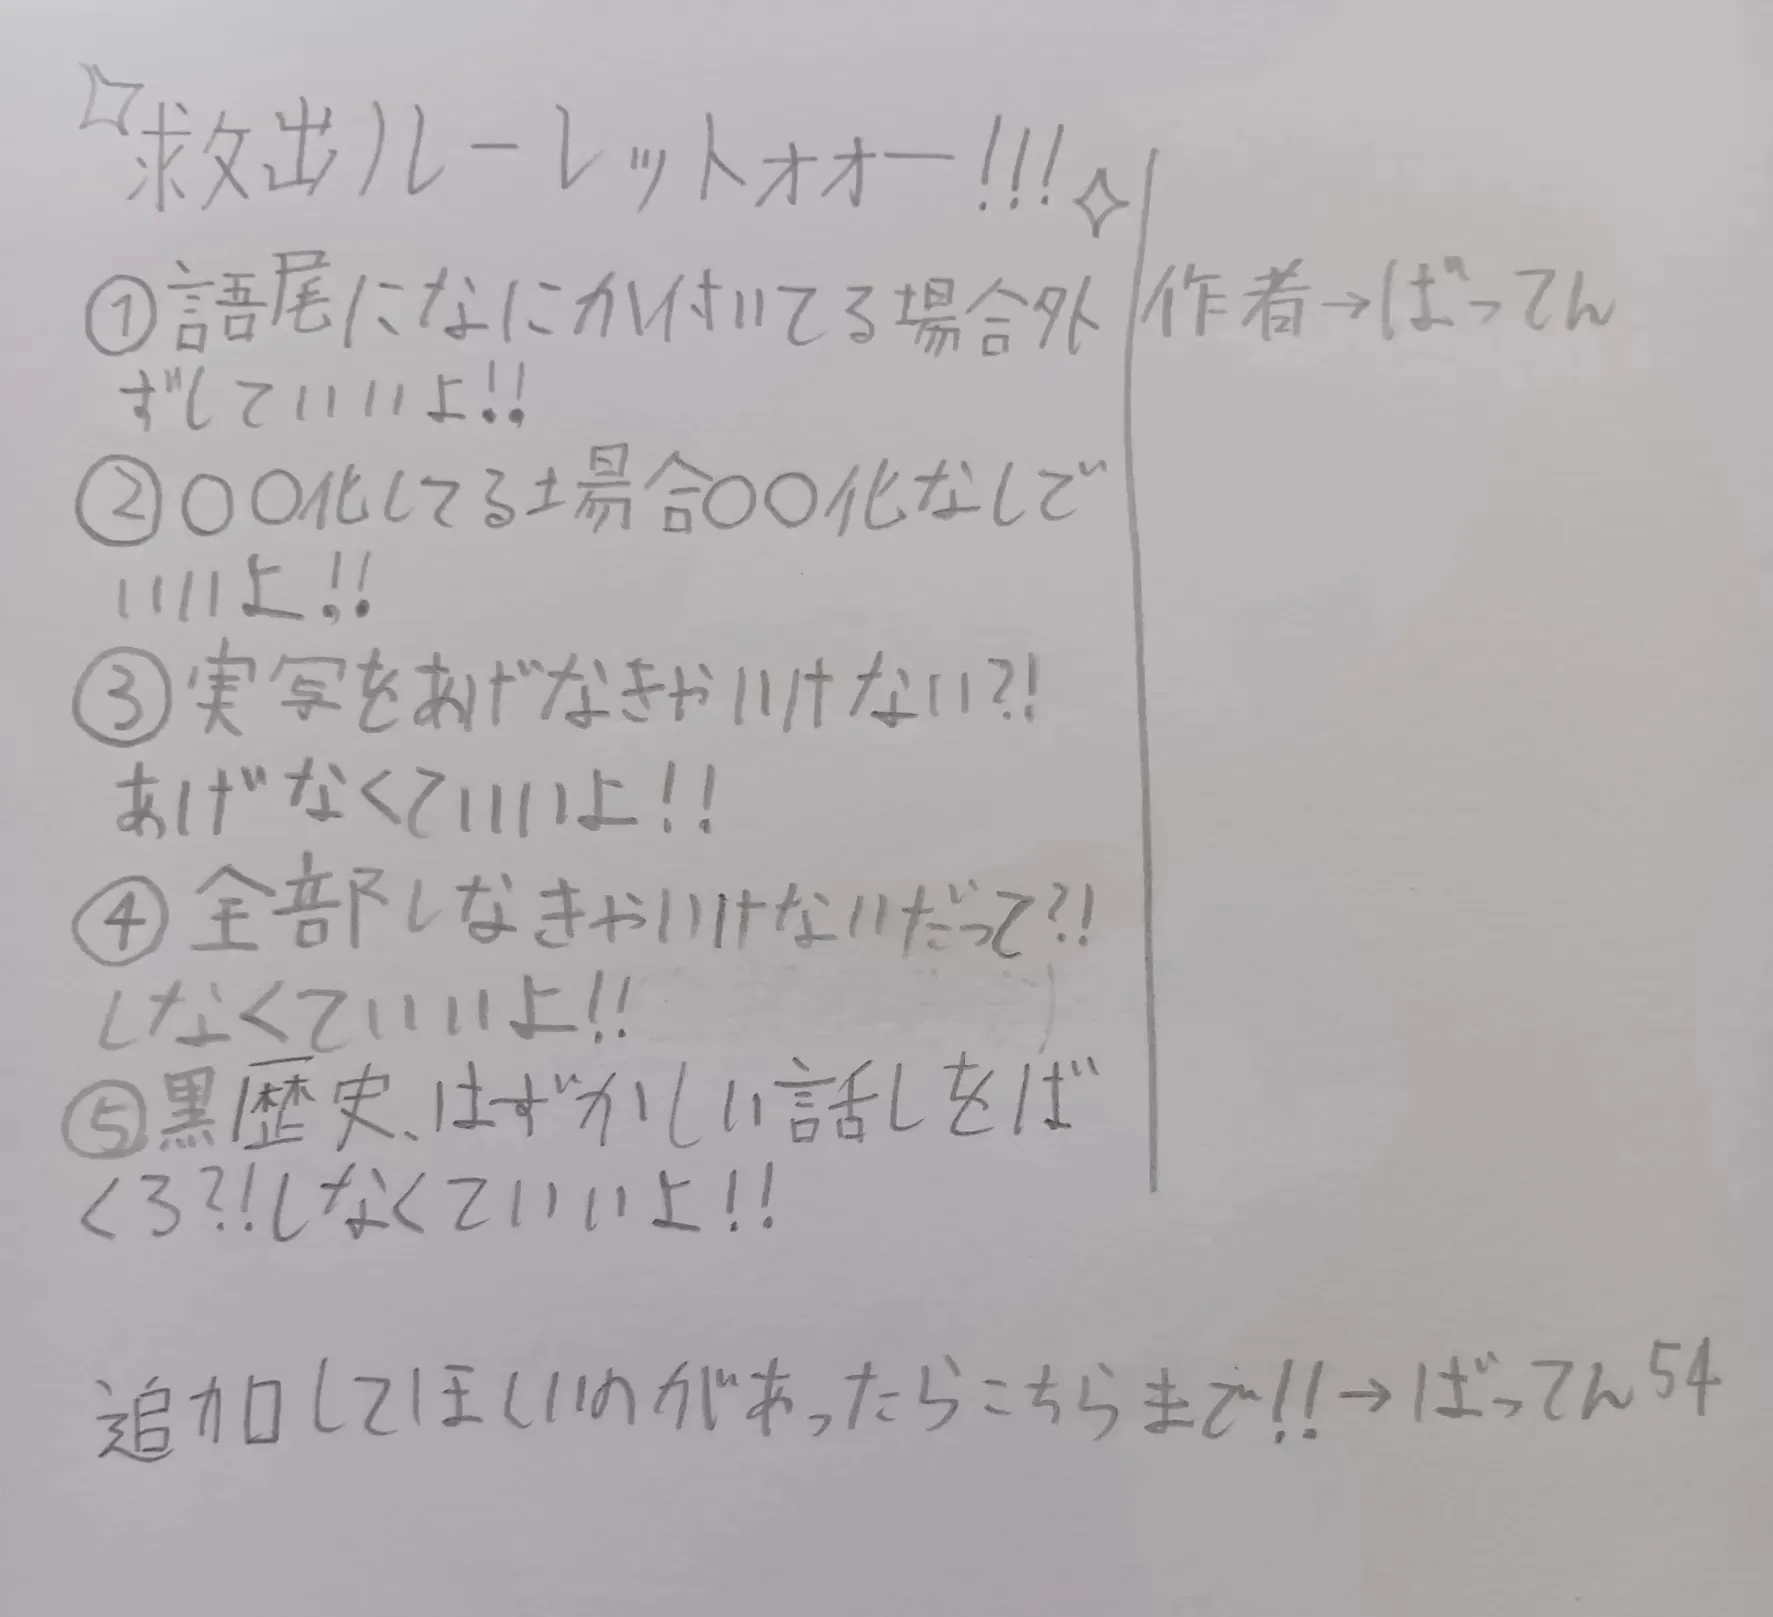 救出ルーレットォオー!!!
①語尾になにか付いてる場合外
ずしていいよ!!
②〇〇化してる場合〇〇化なしで
いいよ!!
③実写をあげなきゃいけない?!
あげなくていいよ!!
④全部しなきゃいけないだって?!
しなくていいよ!!
⑤黒歴史、はずかしい話しをば
くろ?!しなくていいよ!!
作者→ばってん
追加してほしいのがあったらこちらまで!!→ばってん54